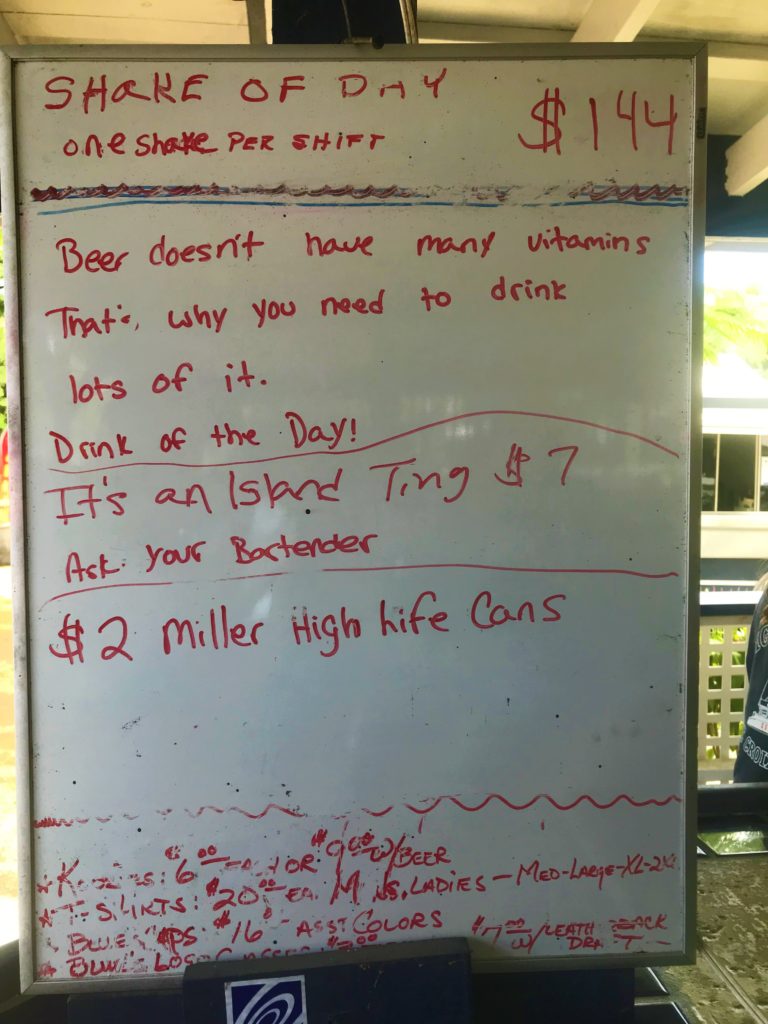 SHAKE OF DAY
$144
one shake PER SHIFT
Beer doesn't have many vitamins
That's why you need to drink
lots of it.
Drink of the Day!
It's an Island Ting $7
Ask your Bartender
$2 Miller High Life Cans
$6.00 OR $9.00 W/BEER
T-SHIRTS: $20.00 EA. LADIES - MED-LARGE-XL-2XL
BLUE $16 - ASST COLORS
$7.00 W/